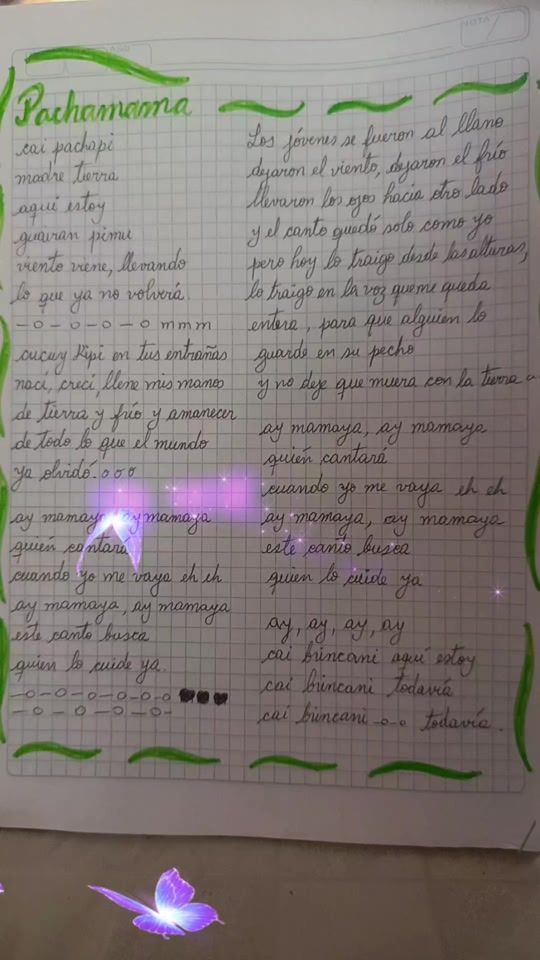 NOTA
Pachamama
cai pachapi
madre tierra
aquí estoy
guairan pimu
viento viene, llevando
lo que ya no volverá.
-o-o-o-o mmm
cucuy Kipi en tus entrañas
nací, crecí, llene mis manos
de tierra y frío y amanecer
de todo lo que el mundo
ya olvidó-ooo
ay mamaya, ay mamaya
quién cantará
cuando yo me vaya eh eh
ay mamaya, ay mamaya
este canto busca
quien lo cuide ya.
-o-o-o-o-o-o-o ♥♥♥
-o-o-o-o-o-
Los jóvenes se fueron al llano
dejaron el viento, dejaron el frío
llevaron los ojos hacia otro lado
y el canto quedó solo como yo
pero hoy lo traigo desde las alturas,
lo traigo en la voz que me queda
entera, para que alguien lo
guarde en su pecho
y no deje que muera con la tierra
ay mamaya, ay mamaya
quién cantará
cuando yo me vaya eh eh
ay mamaya, ay mamaya
este canto busca
quien lo cuide ya
ay, ay, ay, ay
cai bùncani aquí estoy
cai bùncani todavía
cai bùncani -o-o todavía.